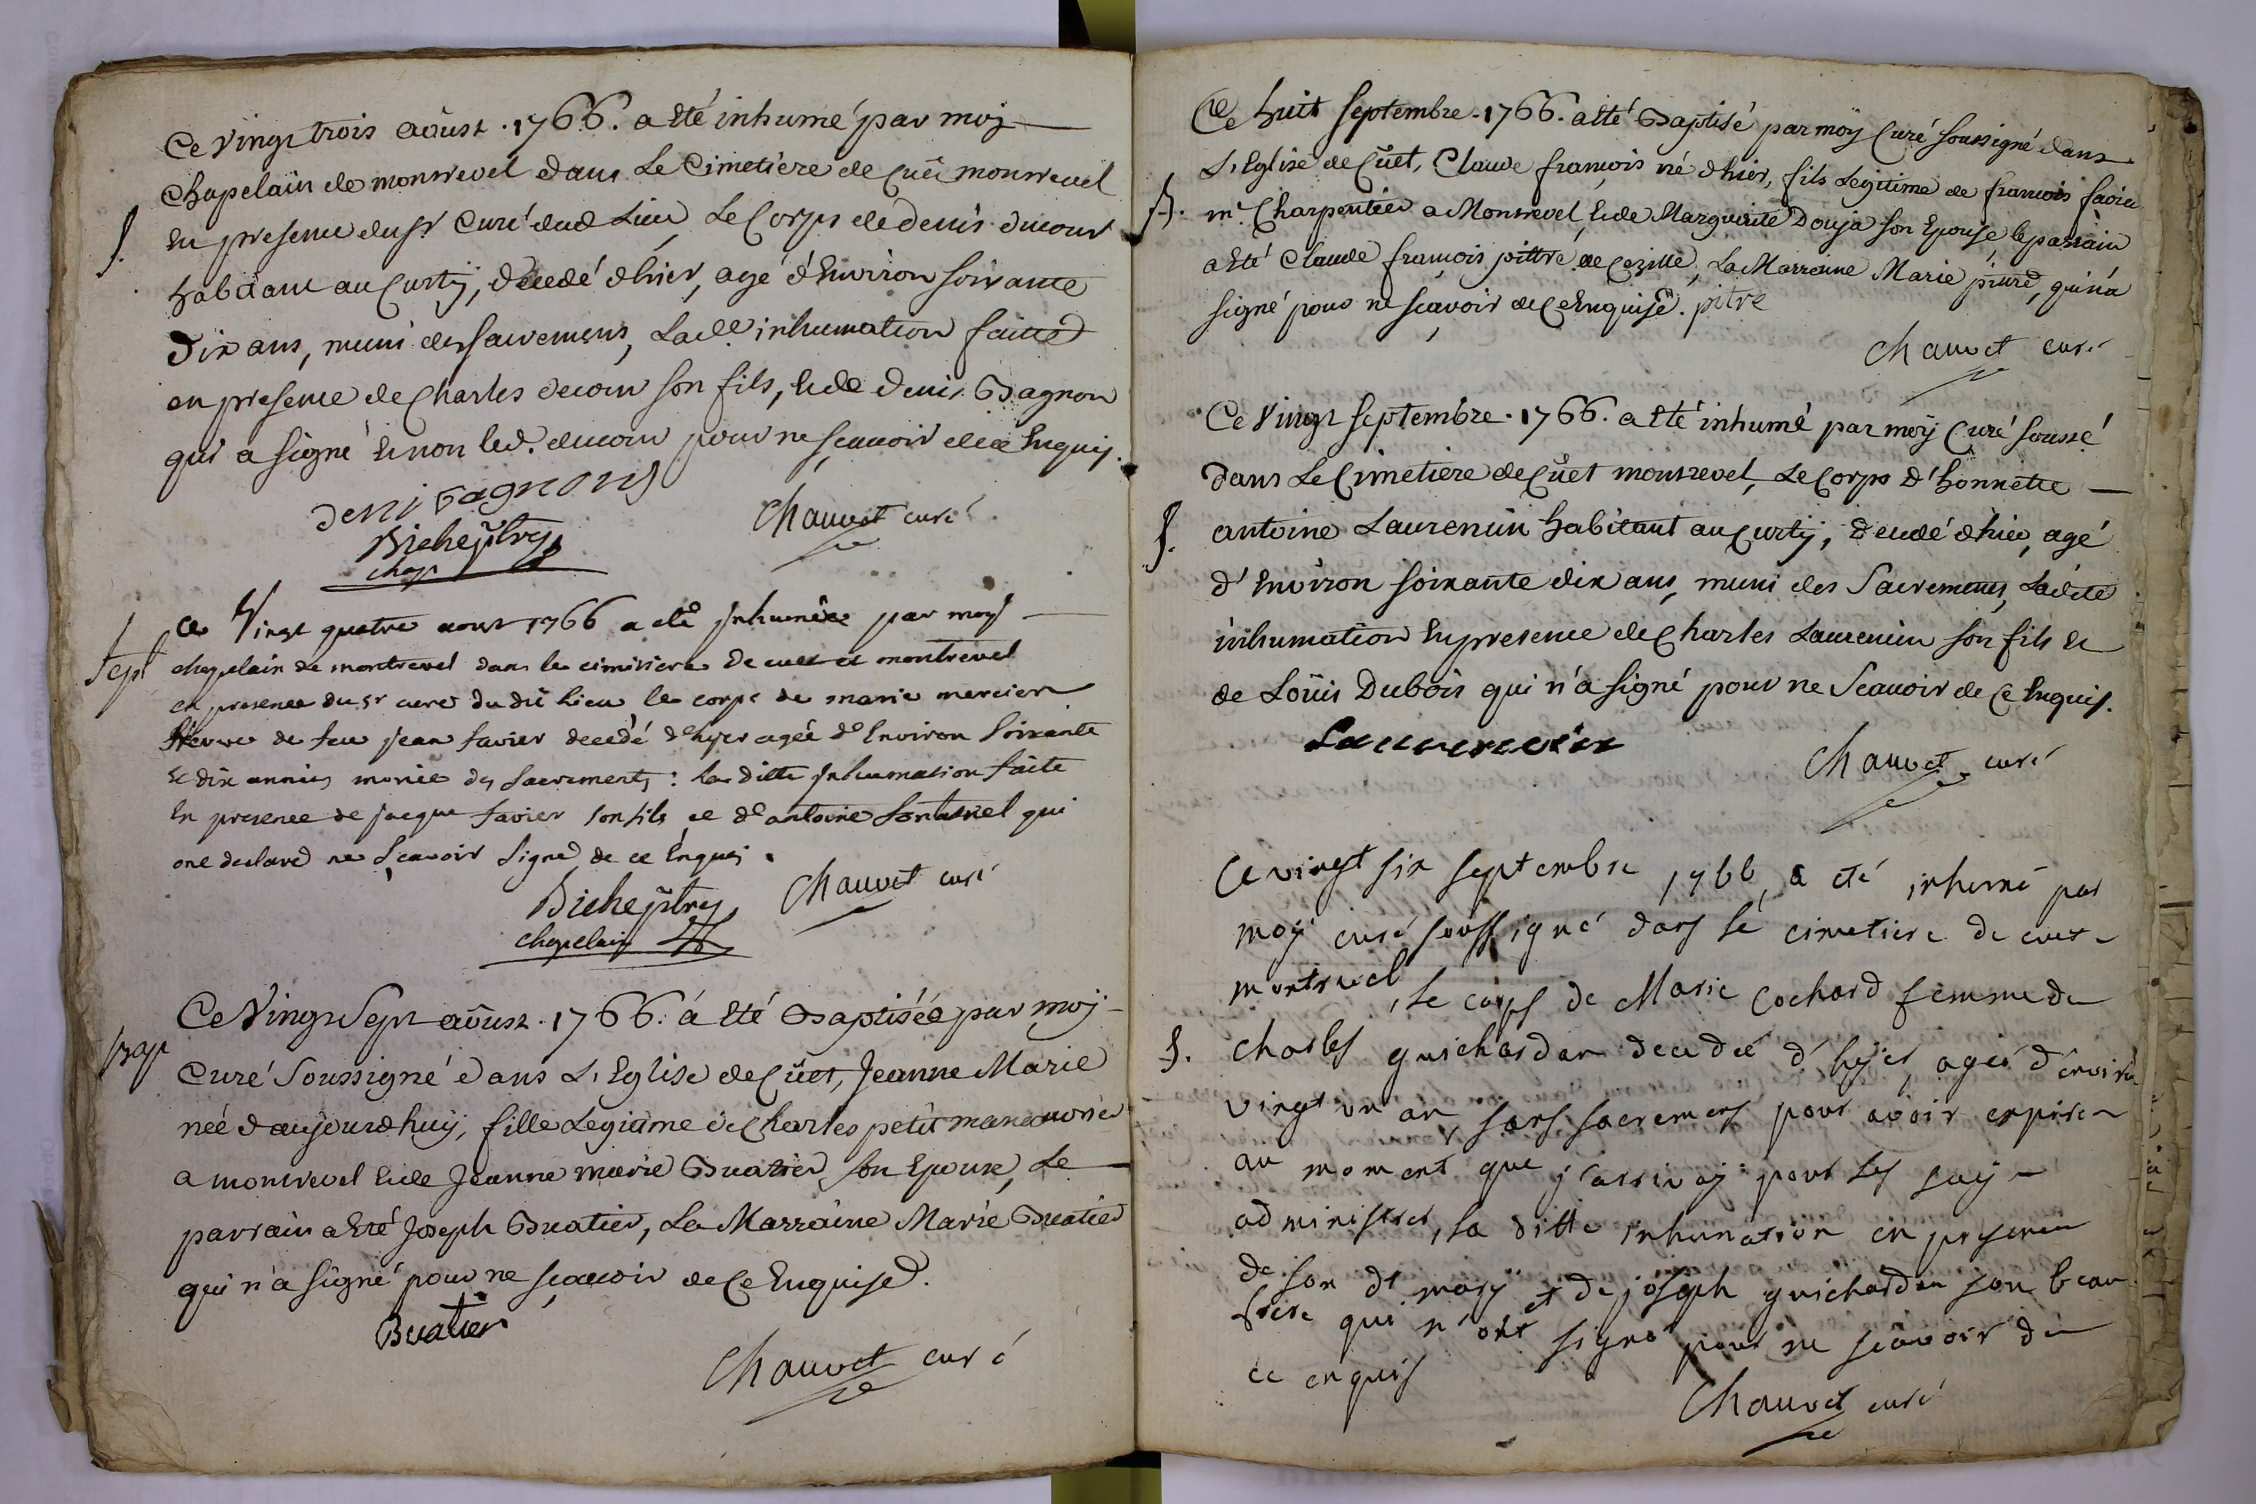 Ce vingt trois aoûst . 1766 . a Eté inhumé par moy
Chapelain de montrevel dans Le Cimetiere de Cuët montrevel
En presence du sr Curé dud Lieu Le Corps de denis ducour
S.
habitant au Curty, decedé d'hier, agé d'Environ soixante
Dix ans, muni des sacremens, Lad.e inhumation faitte
en presence de Charles ducour son fils, Et de denis Bagnon
qui a signé Et non led. ducour pour ne sçavoir de ce Enquis.
deni bagnon
Chauvet curé
chap
Ce Vingt quatre aoust 1766 a eté inhumée par moy
Sept
chapelain de montrevel dans le cimitiere de cuet et montrevel
en presence du sr curé du dit Lieu le corps de marie mercier
veuve de feu jean favier decedé d'hyer agée d'Environ soixante
Et dix années munie des sacrements : La ditte inhumation faite
En presence de jacque favier son fils et d'antoine qui
ont declaré ne sçavoir signé de ce Enquis .
Chauvet curé
chapelain
Ce Vingt Sept aoûst . 1766 . a Eté Baptisée par moy
Bap
Curé Soussigné dans L'Eglise de Cuët, Jeanne Marie
née d'aujourd'huy, fille Legitime de Charles petit manoeuvrier
a montrevel Et de Jeanne marie Buatier son Epouse, Le
parrain a Eté Joseph Buatier, La Marraine Marie Buatier
qui n'a signé pour ne sçavoir de Ce Enquise.
Buatier
Chauvet curé
Ce huit septembre . 1766 . a Eté Baptisé par moy Curé soussigné dans
L'Eglise de Cuët, Claude françois né d'hier, fils Legitime de françois favier
B.
m.e Charpentier a Montrevel, Et de Marguerite Douja son Epouse, le parrain
a Eté Claude françois pittre de Cezille, La Marraine Marie pitre, qui n'a
signé pour ne sçavoir de Ce Enquise. pitre
Chauvet curé
Ce Vingt septembre . 1766 . a Eté inhumé par moy Curé soussé
dans Le Cimetiere de Cuët montrevel, Le Corps d'honnette
S.
antoine Laurencin habitant au Curty, decedé d'hier, agé
d'Environ soixante dix ans, muni des Sacremens, Ladite
inhumation En presence de Charles Laurencin son fils Et
de Loüis Dubois qui n'a signé pour ne Scavoir de Ce Enquis.
Laurencin
Chauvet curé
Ce vingt six septembre 1766, a eté inhumé par
moy curé soussigné dans le cimetiere de cuet
montrevel, le corps de Marie Cochard femme de
S.
Charles guichardan decedeé d'hyer, ageé d'environ
vingt un an, sans sacremens pour avoir expiré
au moment que j'arrivay pour les luy
administrer, la ditte inhumation en presence
de son dt mary et de joseph guichardan son beau
frere qui n'ont signé pour ne sçavoir de
ce enquis
Chauvet curé